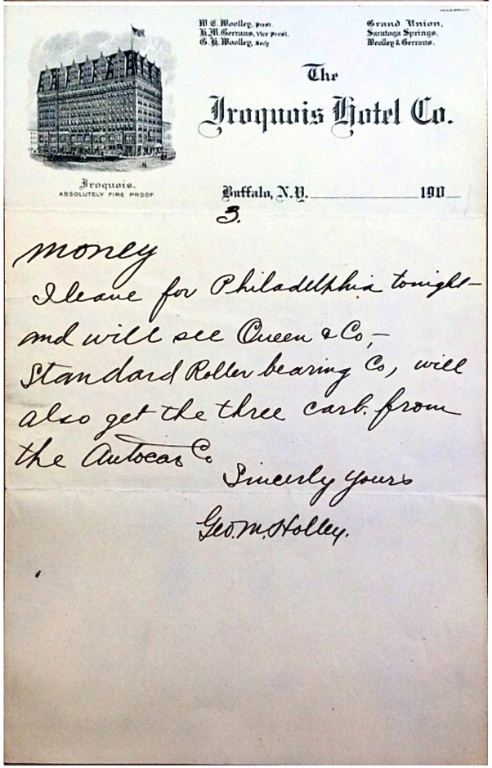 W. E. Woolley, Prest.
H. M. Gerrans, Vice Prest.
G. H. Woolley, Secy
Grand Union,
Saratoga Springs.
Woolley & Gerrans.
The
Iroquois Hotel Co.
Iroquois.
ABSOLUTELY FIRE PROOF.
Buffalo, N.Y. 190
3.
money
I leave for Philadelphia tonight-
and will see Queen & Co,-
Standard Roller bearing Co, will
also get the three carb. from
the Autocar Co
Sincerly yours
Geo. M. Holley.